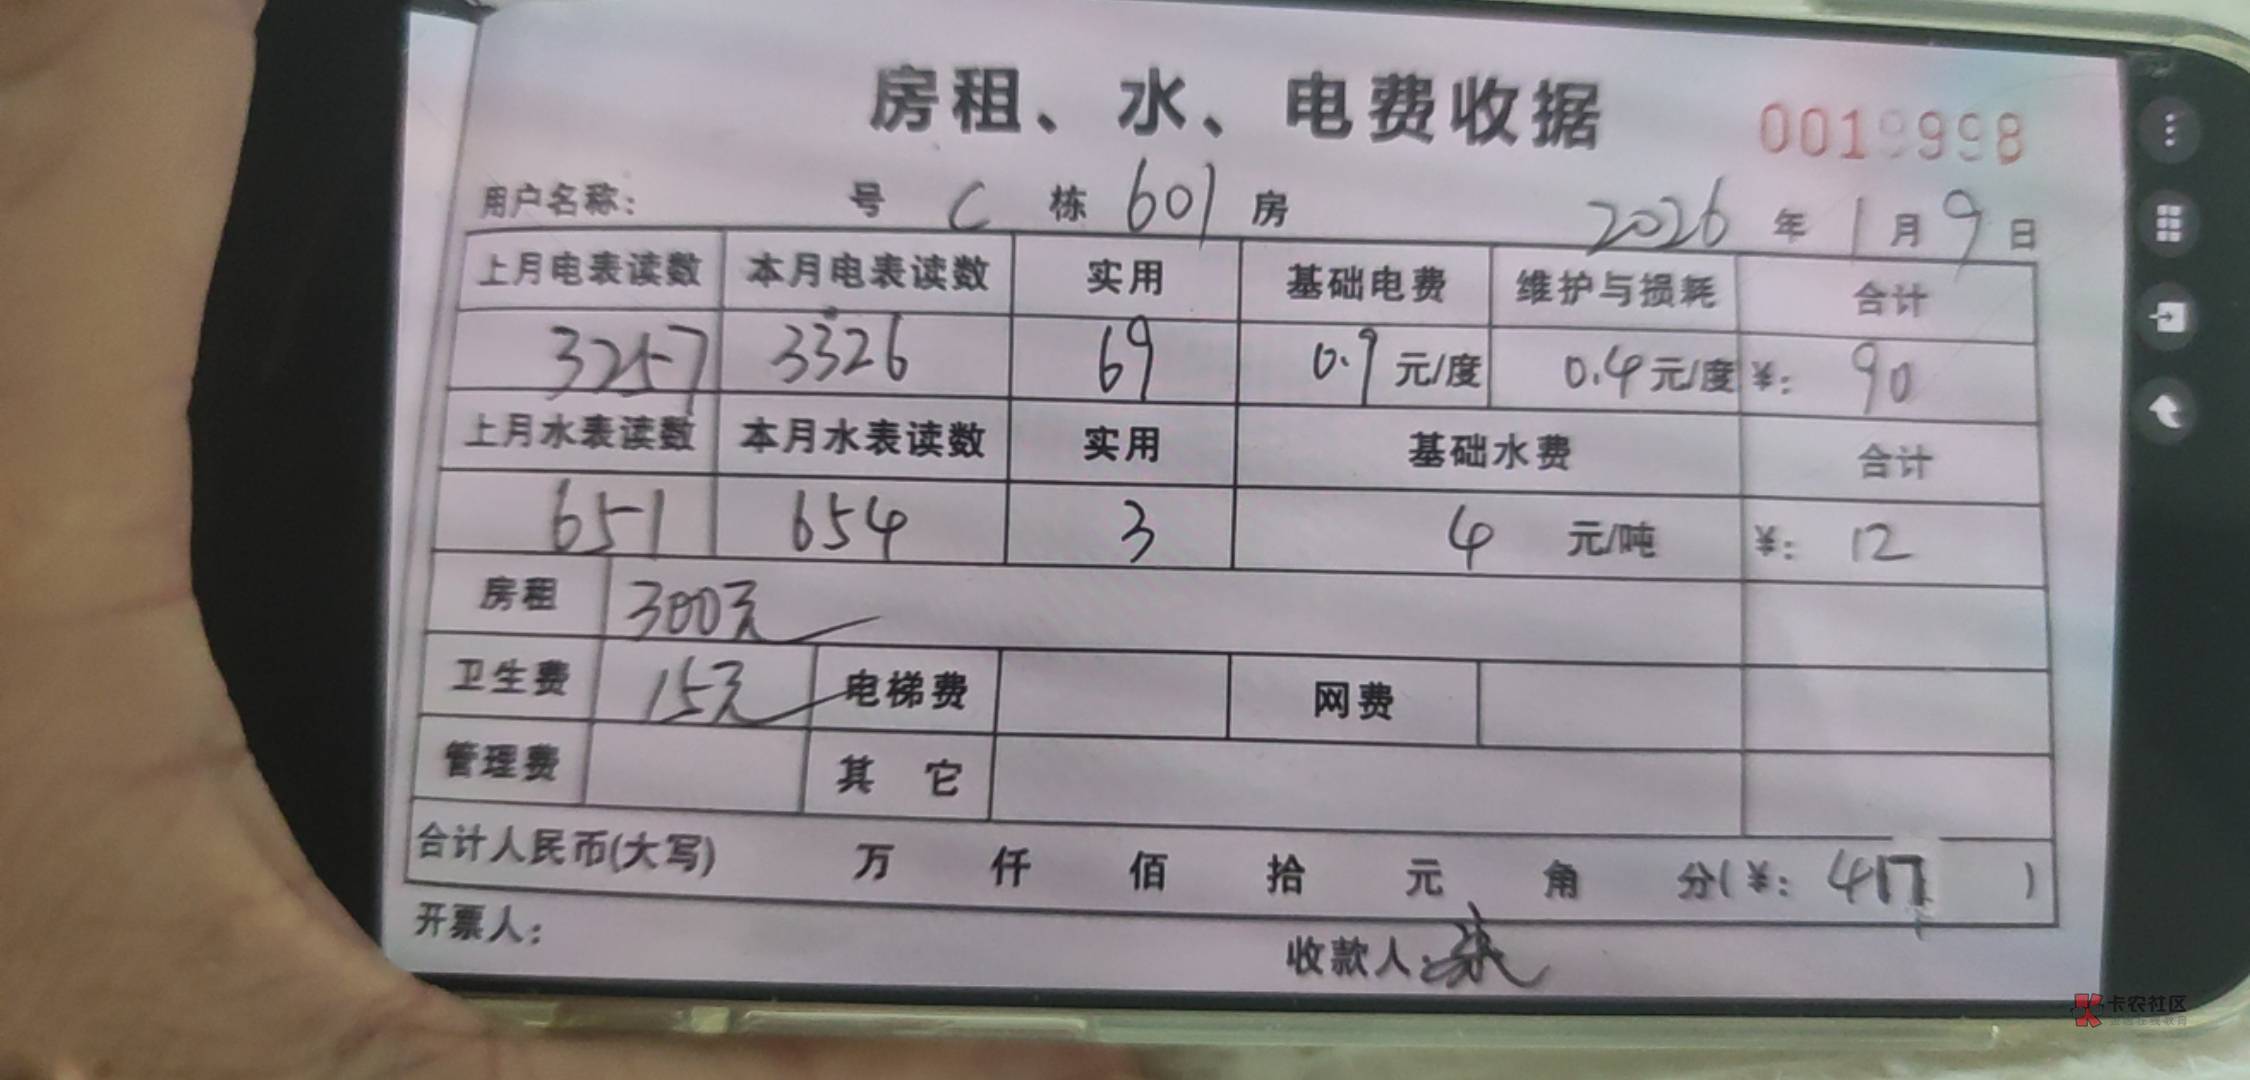 房租、水、电费收据
0019998
用户名称: 号 C 栋 601 房 2026 年 1 月 9 日
上月电表读数 本月电表读数 实用 基础电费 维护与损耗 合计
3257 3326 69 0.9 元/度 0.4 元/度 ¥: 90
上月水表读数 本月水表读数 实用 基础水费 合计
651 654 3 4 元/吨 ¥: 12
房租 300元
卫生费 15元 电梯费 网费
管理费 其 它
合计人民币(大写) 万 仟 佰 拾 元 角 分(¥: 417 )
开票人: 收款人:
卡农社区